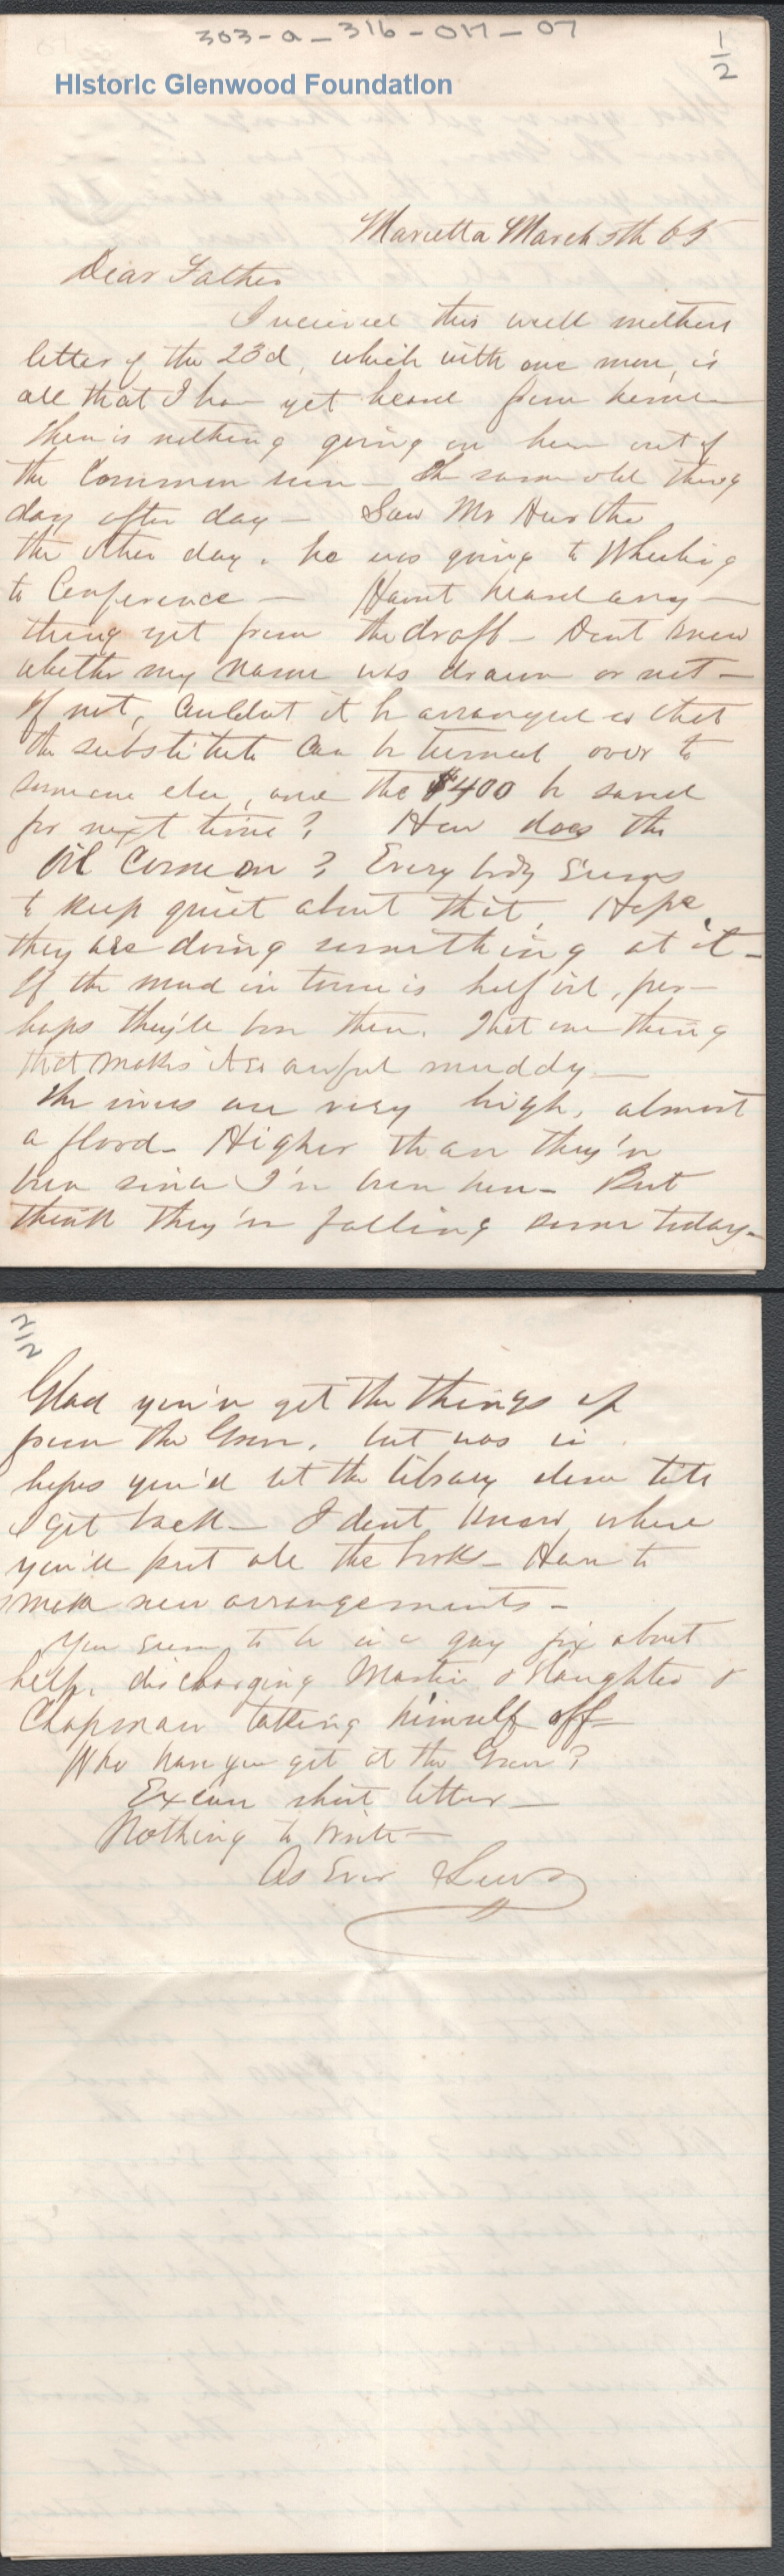 303-a-316-017-07
1/2
Historic Glenwood Foundation
Marietta March 5th 65
Dear Father
I received this week mothers
letter of the 23d, which with one more, is
all that I have yet heard from home
There is nothing going on here out of
the Common run - the same old thing
day after day - Saw Mr
the other day. he was going to Wheeling
to Conference - Havnt heard any-
thing yet from the draft - Dont know
whether my name was drawn or not -
If not, Couldnt it be arranged so that
the substitute can be turned over to
someone else, and the $400 be saved
for next time? How does the
Oil Come on? Every body seems
to keep quiet about that. Hope
they are doing something at it -
If the mud in town is half oil, per-
haps they'le bore there. That one thing
that makes it so awful muddy -
The rivers are very high, almost
a flood - Higher than they've
been since I've been here - But
think they're falling some today -
2/2
Glad you've got the things up
from the Green, but was in
hopes you'd let the library alone till
I get back - I dont know where
you'll put all the books - Have to
make new arrangements -
You seem to be in a gay fix about
help, discharging Martin & Slaughter &
Chapman taking himself off -
Who have you got at the Green?
Excuse short letter -
Nothing to write -
As Ever